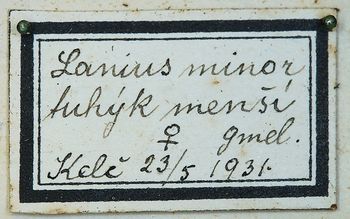 Lanius minor
tuhýk menší
♀ gmel.
Kelč 23/5 1931.